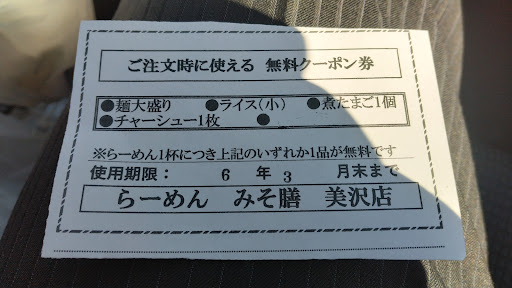 ご注文時に使える 無料クーポン券
●麺大盛り ●ライス(小) ●煮たまご1個
●チャーシュー1枚 ●
※らーめん1杯につき上記のいずれか1品が無料です
使用期限: 6 年 3 月末まで
らーめん みそ膳 美沢店